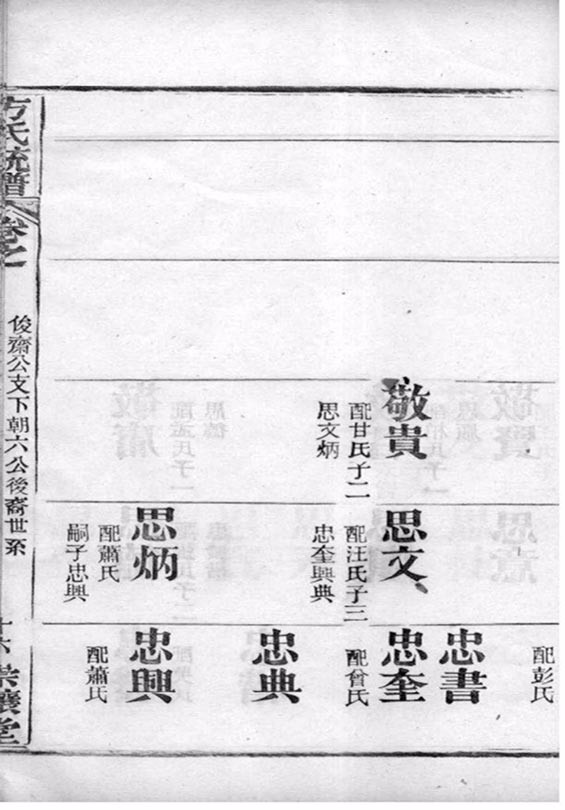 配彭氏
忠書
敬貴
配甘氏子二
思文炳
思文
配汪氏子三
忠奎興典
忠奎
配曾氏
忠典
思炳
配蕭氏
嗣子忠興
忠興
配蕭氏
方氏統譜
卷之
俊齋公支下朝六公後裔世系
堂